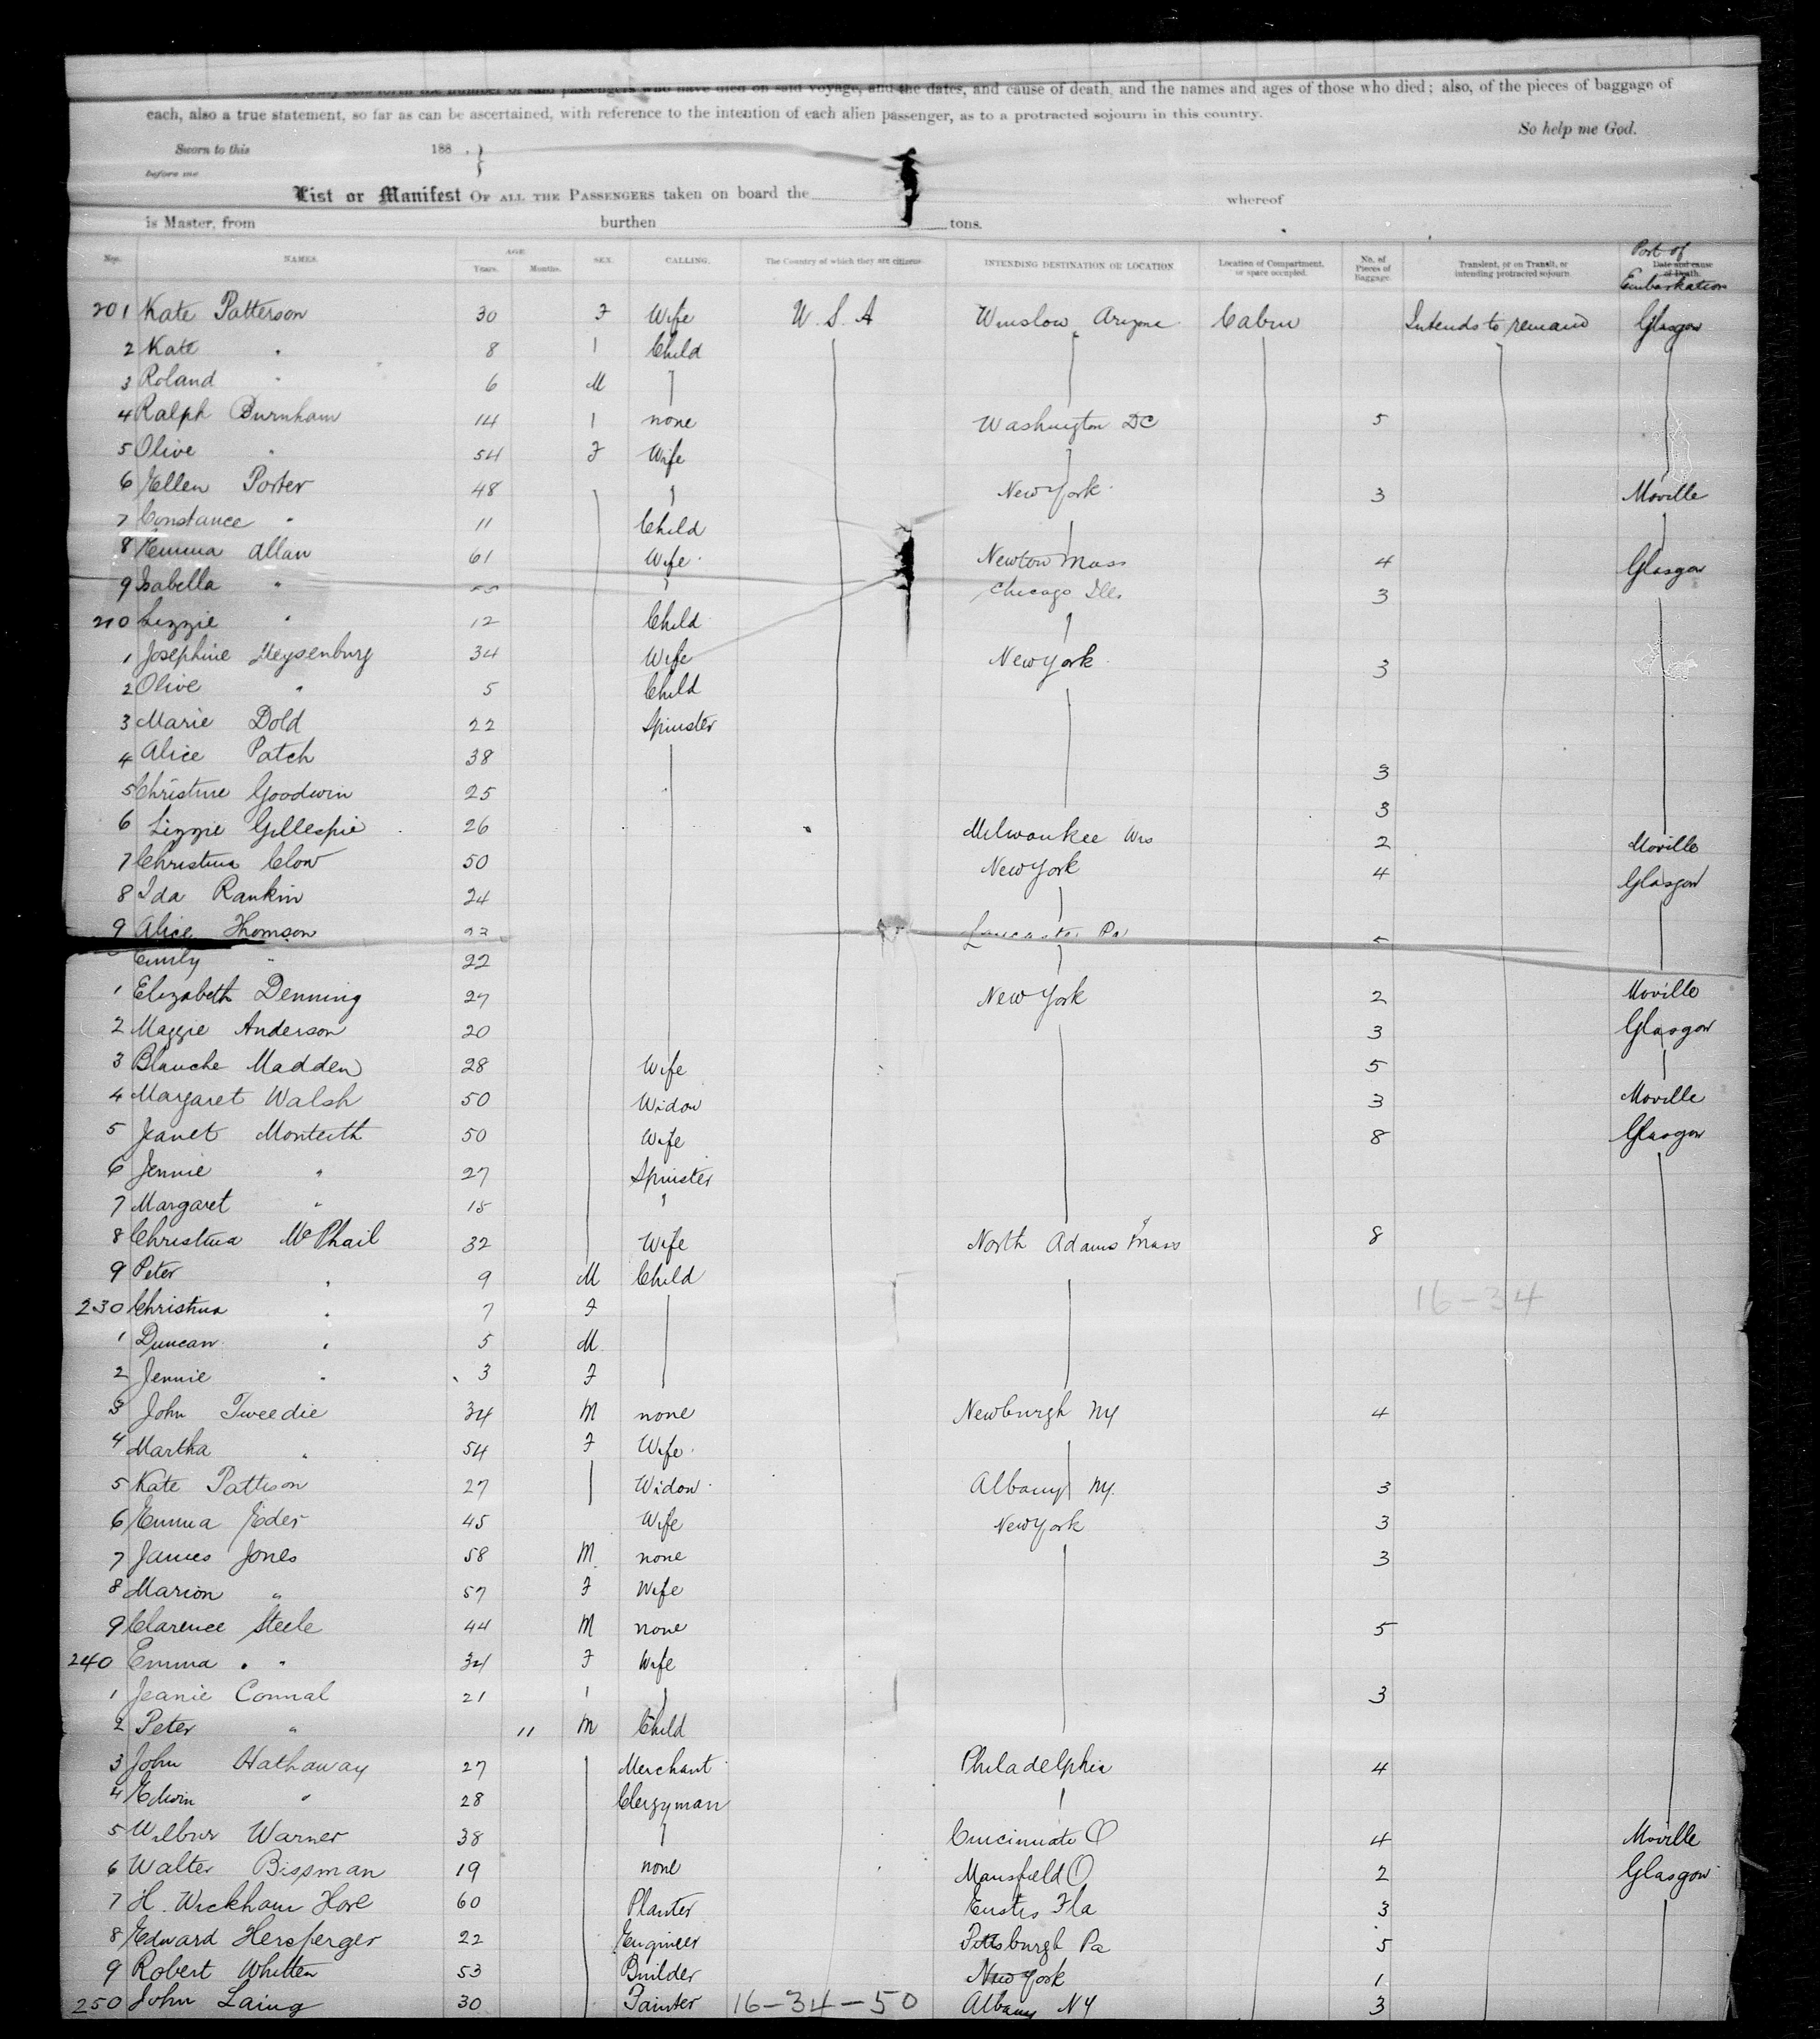 passengers who have died on said voyage, and the dates, and cause of death, and the names and ages of those who died; also, of the pieces of baggage of
each, also a true statement, so far as can be ascertained, with reference to the intention of each alien passenger, as to a protracted sojourn in this country.
So help me God.
Sworn to this 188 . }
before me
List or Manifest OF ALL THE PASSENGERS taken on board the whereof
is Master, from burthen tons.
Nos. NAMES. AGE Years. Months. SEX. CALLING. The Country of which they are citizens. INTENDING DESTINATION OR LOCATION Location of Compartment, or space occupied. No. of Pieces of Baggage. Transient, or on Transit, or intending protracted sojourn. Date and cause of Death. Port of Embarkation
201 Kate Patterson 30 F Wife U. S. A Winslow Arizona Cabin Intends to remain Glasgow
2 Kate " 8 Child
3 Roland " 6 M
4 Ralph Burnham 14 none Washington DC 5
5 Olive " 54 F Wife
6 Ellen Porter 48 New York 3 Moville
7 Constance " 11 Child
8 Emma Allan 61 Wife Newton Mass 4 Glasgow
9 Isabella " Chicago Ills 3
210 Lizzie " 12 Child
1 Josephine Meysenburg 34 Wife New York 3
2 Olive " 5 Child
3 Marie Dold 22 Spinster
4 Alice Patch 38 3
5 Christine Goodwin 25 3
6 Lizzie Gillespie 26 Milwaukee Wis 2 Moville
7 Christina Clow 50 New York 4 Glasgow
8 Ida Rankin 24
9 Alice Thomson 23 Lancaster Pa 5
Emily " 22
1 Elizabeth Denning 27 New York 2 Moville
2 Maggie Anderson 20 3 Glasgow
3 Blanche Madden 28 Wife 5
4 Margaret Walsh 50 Widow 3 Moville
5 Janet Monteith 50 Wife 8 Glasgow
6 Jennie " 27 Spinster
7 Margaret " 15 "
8 Christina McPhail 32 Wife North Adams Mass 8
9 Peter " 9 M Child
230 Christina " 7 F 16-34
1 Duncan " 5 M
2 Jennie " 3 F
3 John Tweedie 34 M none Newburgh NY 4
4 Martha " 54 F Wife
5 Kate Pattison 27 Widow Albany NY 3
6 Emma Eder 45 Wife New York 3
7 James Jones 58 M none 3
8 Marion " 57 F Wife
9 Clarence Steele 44 M none 5
240 Emma " 34 F Wife
1 Jeanie Connal 21 3
2 Peter " 11 M Child
3 John Hathaway 27 Merchant Philadelphia 4
4 Edwin " 28 Clergyman
5 Wilbur Warner 38 Cincinnati O 4 Moville
6 Walter Bissman 19 none Mansfield O 2 Glasgow
7 H. Wickham Hore 60 Planter Eustis Fla 3
8 Edward Hersperger 22 Engineer Pittsburgh Pa 5
9 Robert Whitten 53 Builder New York 1
250 John Laing 30 Painter 16-34-50 Albany NY 3